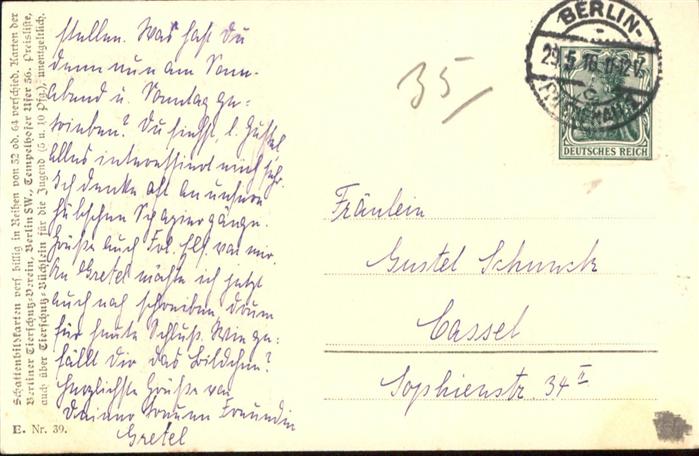 Schattenbildkarten versch. billig in Reihen von 32 od. 64 verschied. Karten der
Berliner Tierschutz-Verein, Berlin SW., Tempelhofer Ufer 36. Preisliste,
auch über Tierschutz-Büchlein für die Jugend (5 u. 10 Pfg.), unentgeltlich.
E. Nr. 39.
stellen. Was hast Du
denn nun am Sonn-
abend u. Sonntag ge-
trieben? Du siehst, l. Gustel
alles interessiert mich sehr.
Ich denke oft an unsere
hübschen Spaziergänge.
Grüße auch Frl. von mir.
An Gretel möchte ich jetzt
auch noch schreiben, drum
für heute Schluß. Wie ge-
fällt Dir das Bildchen?
Herzlichste Grüße von
Deiner treuen Freundin
Gretel
35
BERLIN
29.5.16.11-12V.
DEUTSCHES REICH
5
Fräulein
Gustel Schunck
Cassel
Sophienstr. 34 II